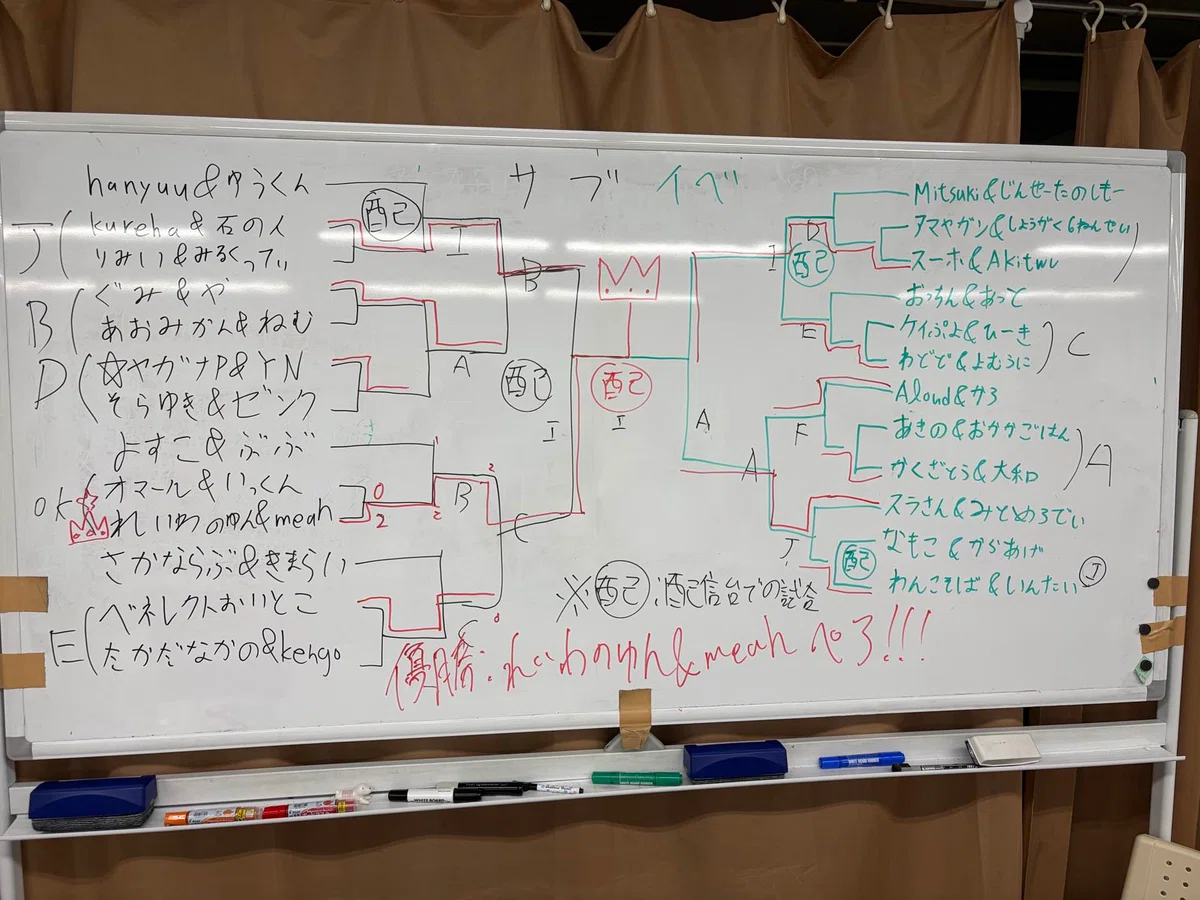 サブイベ
hanyuu&ゆうくん
J
kureha&石の人
りみい&みるくってぃ
B
ぐみ&や
あおみかん&ねむ
D
☆ヤガナP&YN
そらゆき&ゼンク
よすこ&ぶぶ
OK
オマール&いっくん
れいわのゆん&meah
さかならぶ&きまらい
E
ベネレクトおいとこ
たかだなかの&kengo
配
I
B
A
配
I
0
2
2
B
2
C
0
C
配
I
A
I
D
配
E
F
A
J
配
Mitsuki&じんせーたのしもー
アマヤガン&しょうがく6ねんせい
スーホ&Akitwu
おっちん&あっと
ケイぷよ&ひーき
C
わどど&よむうに
Aloud&サろ
あきの&おかかごはん
A
かくざとう&大和
スラさん&みとめろでぃ
なもこ&からあげ
わんこそば&いんたい
J
※配:配信台での試合
優勝:れいわのゆん&meahペア!!!
WHITE BOARD